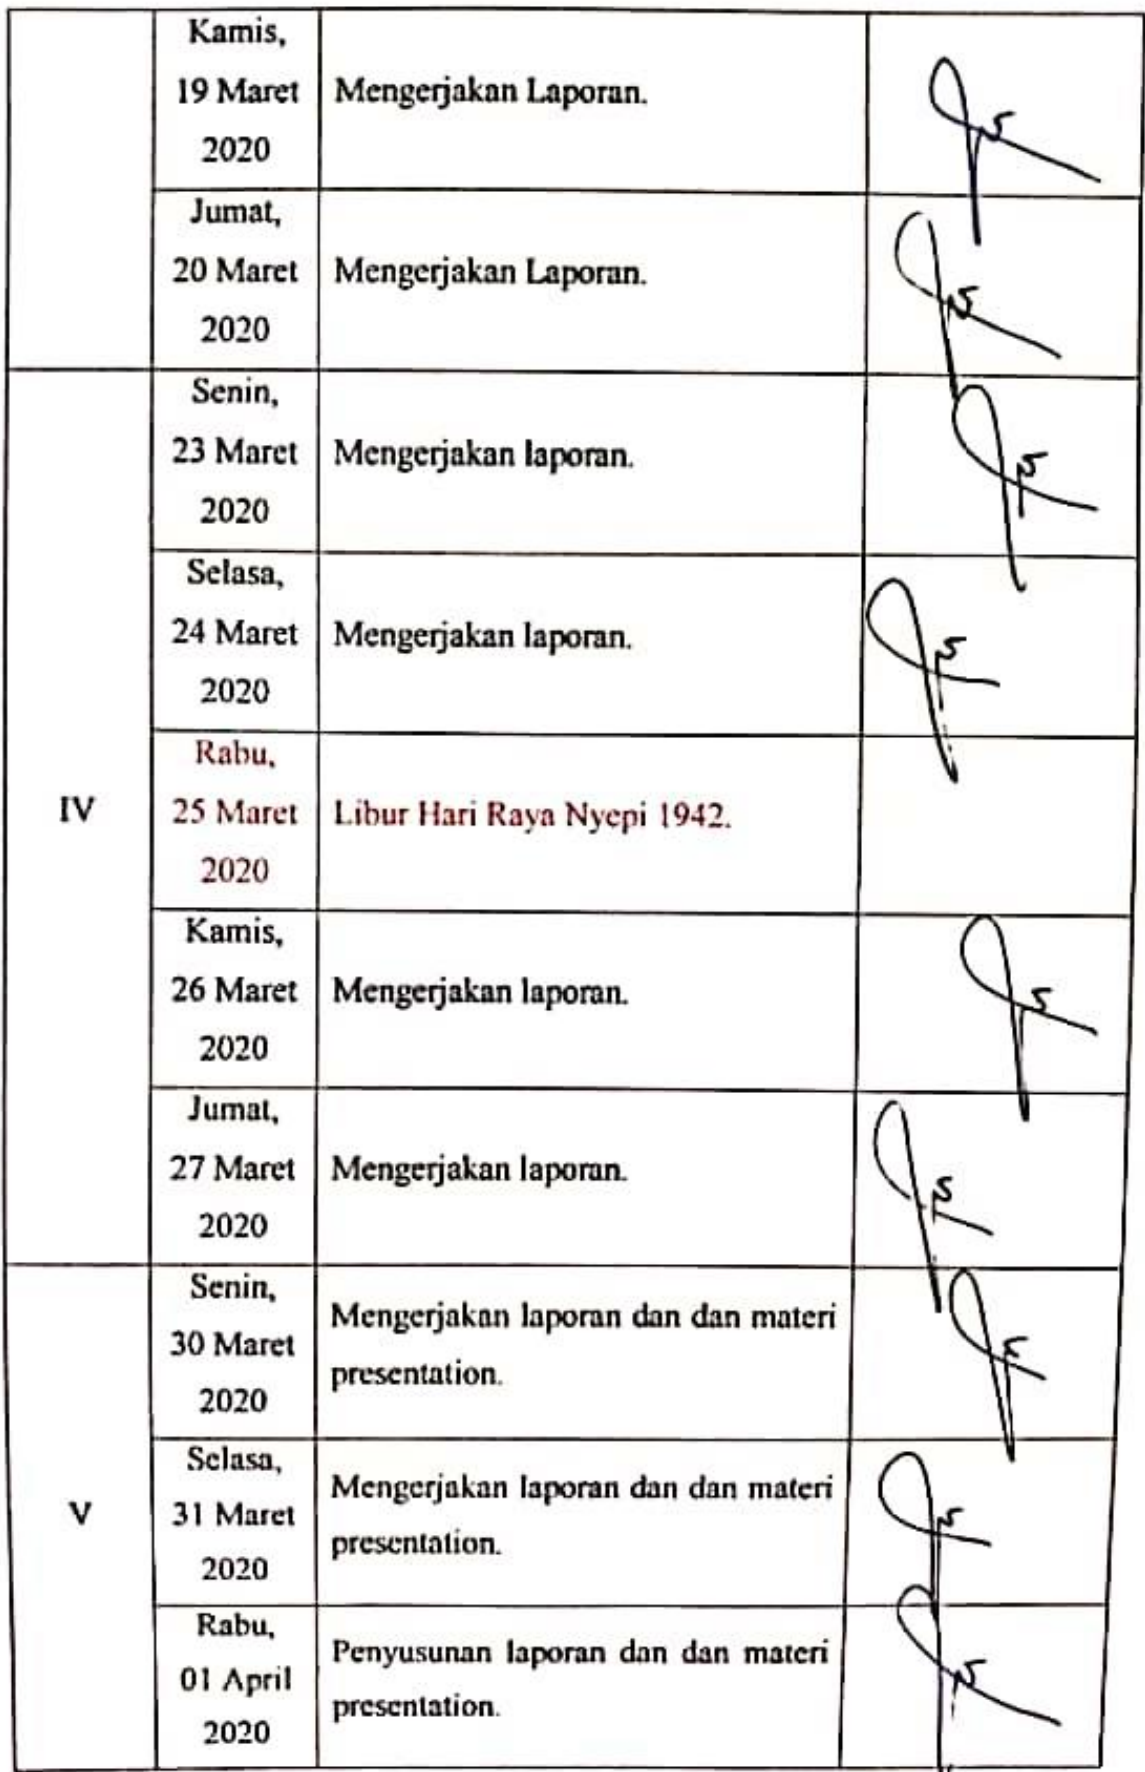 Kamis,
19 Maret
2020
Mengerjakan Laporan.
Jumat,
20 Maret
2020
Mengerjakan Laporan.
IV
Senin,
23 Maret
2020
Mengerjakan laporan.
Selasa,
24 Maret
2020
Mengerjakan laporan.
Rabu,
25 Maret
2020
Libur Hari Raya Nyepi 1942.
Kamis,
26 Maret
2020
Mengerjakan laporan.
Jumat,
27 Maret
2020
Mengerjakan laporan.
V
Senin,
30 Maret
2020
Mengerjakan laporan dan dan materi
presentation.
Selasa,
31 Maret
2020
Mengerjakan laporan dan dan materi
presentation.
Rabu,
01 April
2020
Penyusunan laporan dan dan materi
presentation.